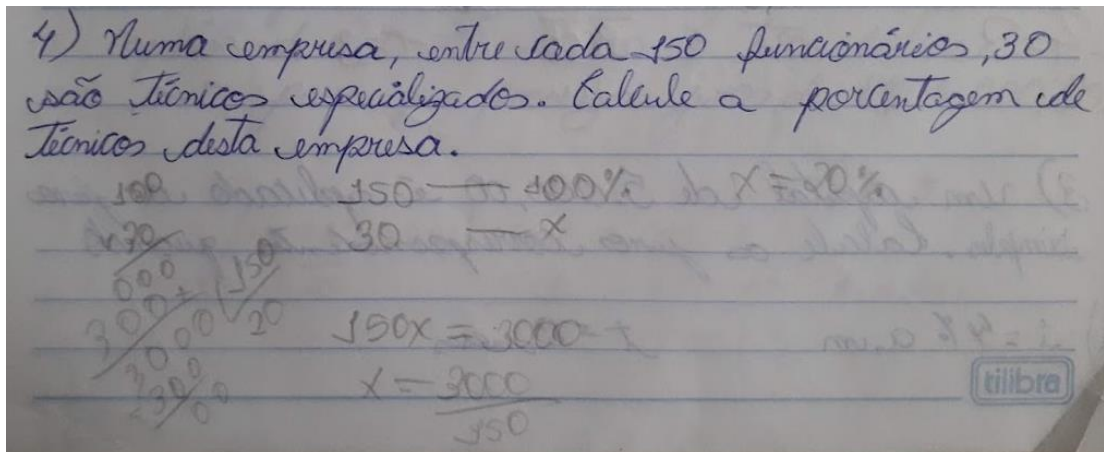 4) Numa empresa, entre cada 150 funcionários, 30
são técnicos especializados. Calcule a porcentagem de
técnicos desta empresa.
100
x30
000
300+
3000 150
-300 20
00
150 — 100% x = 20%
30 — x
150x = 3000
x = 3000
150
tilibra